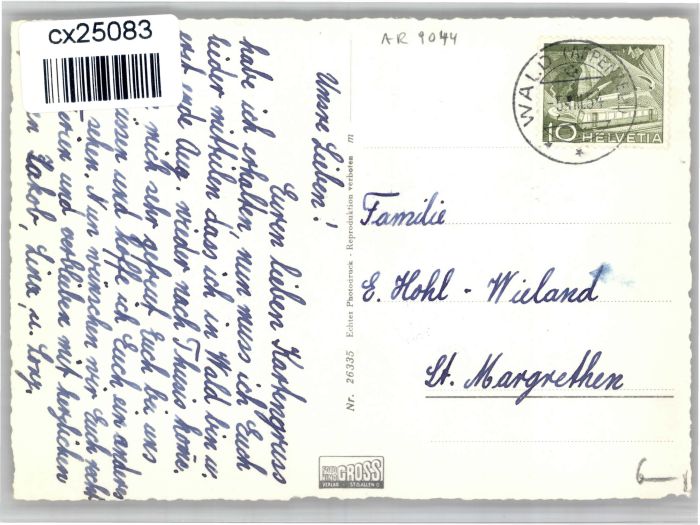 cx25083
AR 9044
WALD (APPENZELL)
10 HELVETIA
Unsre Lieben!
Euren lieben Kartengruss
habe ich erhalten, nun muss ich Euch
leider mitteilen, dass ich in Wald bin u.
erst ende Aug. wieder nach Thusis komme.
mich sehr gefreut Euch bei uns
und hoffe ich Euch ein anders
sehen. Nun wünschen wir Euch recht
und verbleiben mit herzlichen
Jakob, Lina, u. Lony.
Nr. 26335 Echter Photodruck - Reproduktion verboten m
Familie
E. Hohl - Wieland
St. Margrethen
FOTO GROSS
VERLAG - ST.GALLEN
6